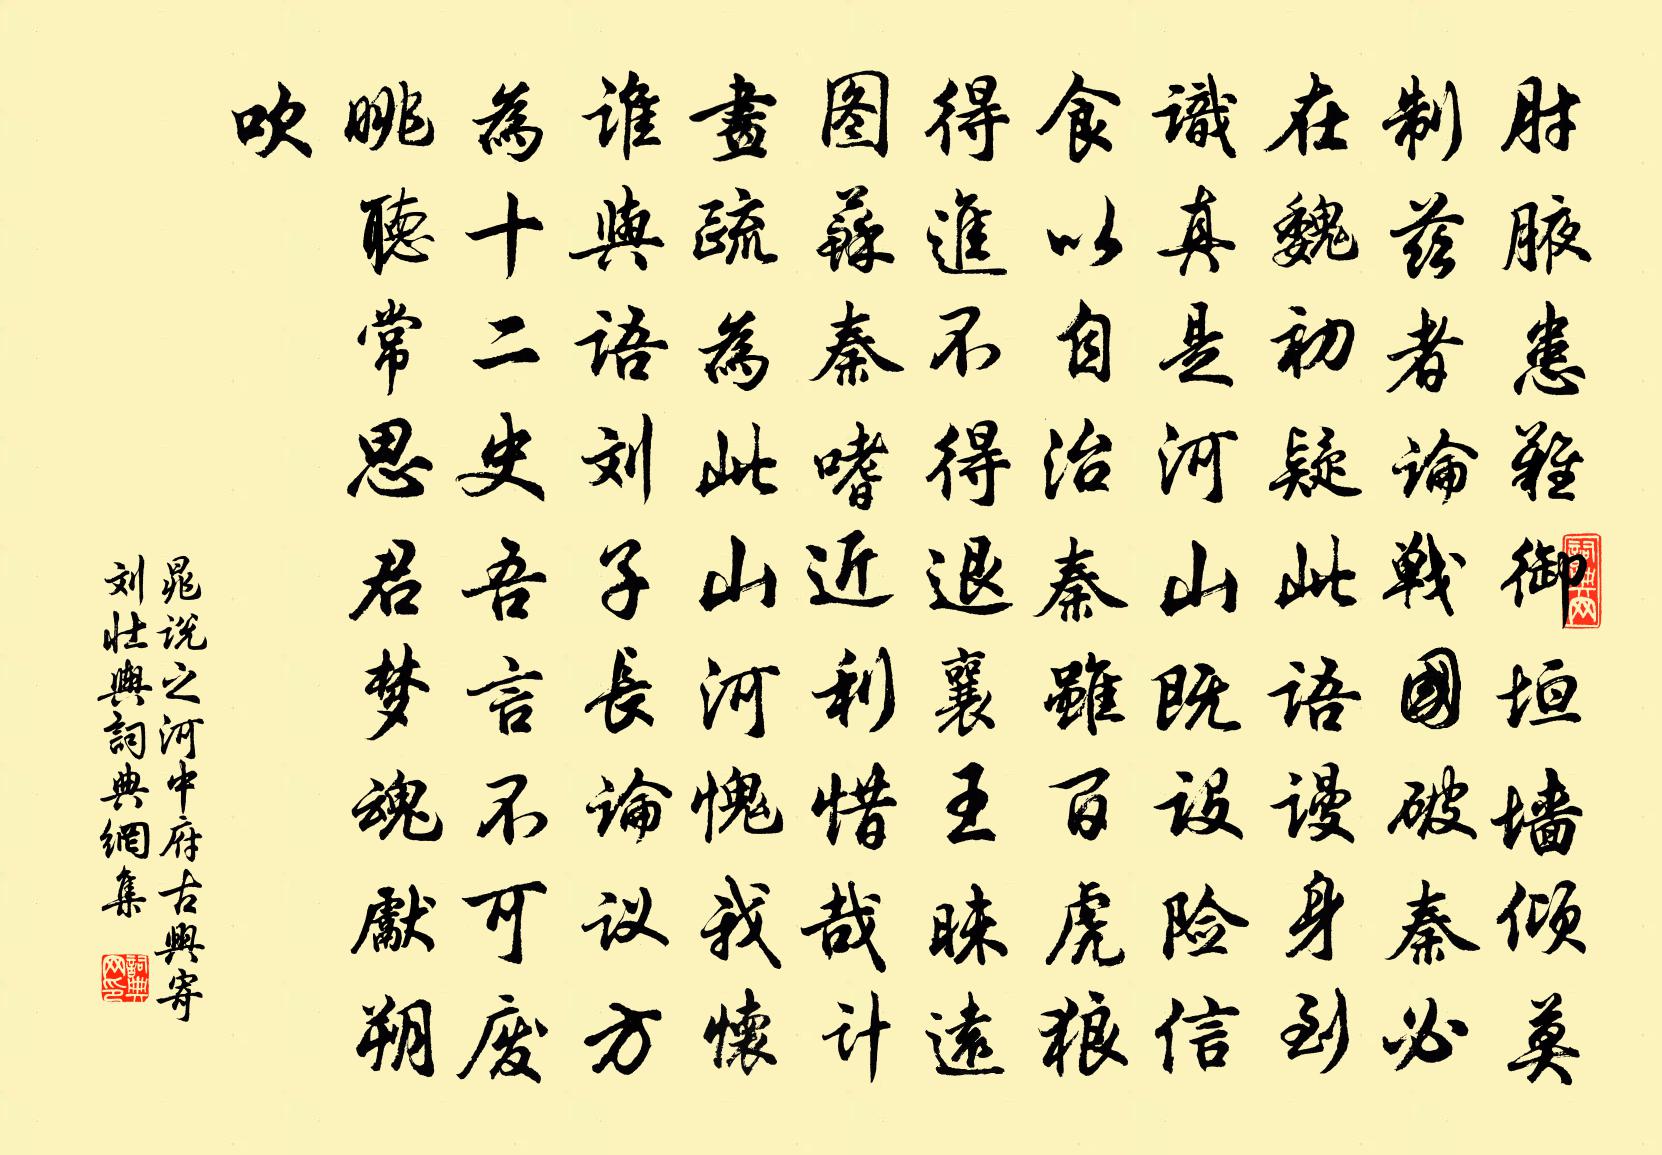 肘腋患難御垣墙倾莫
制兹者論戰國破秦必
在魏初疑此語謾身到
識真是河山既设险信
食以自治秦雖百虎狼
得進不得退襄王昧遠
图蘇秦嗜近利惜哉计
畫疏為此山河愧我懐
谁與語刘子長論议方
為十二史吾言不可废
眺聽常思君梦魂獻朔
吹
晁说之河中府古興寄
刘壮輿詞典網集